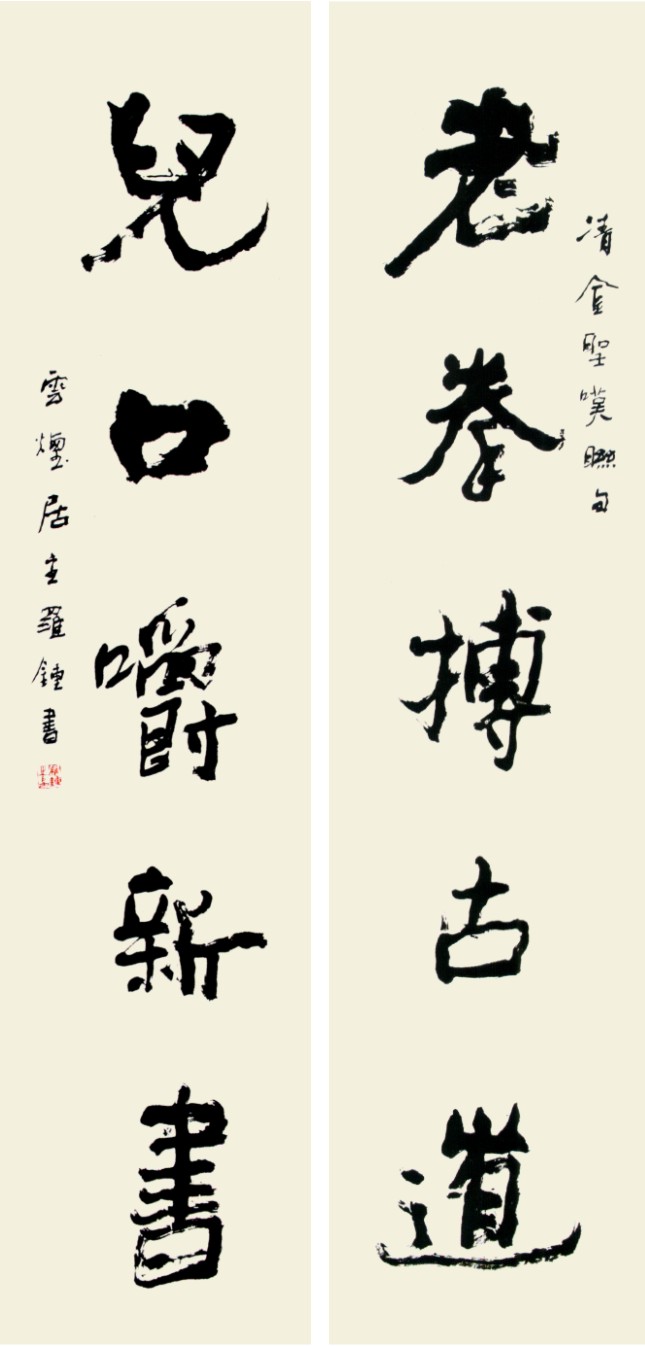 清金聖嘆聯句
老拳搏古道
兒口嚼新書
雲煙居主羅鍾書